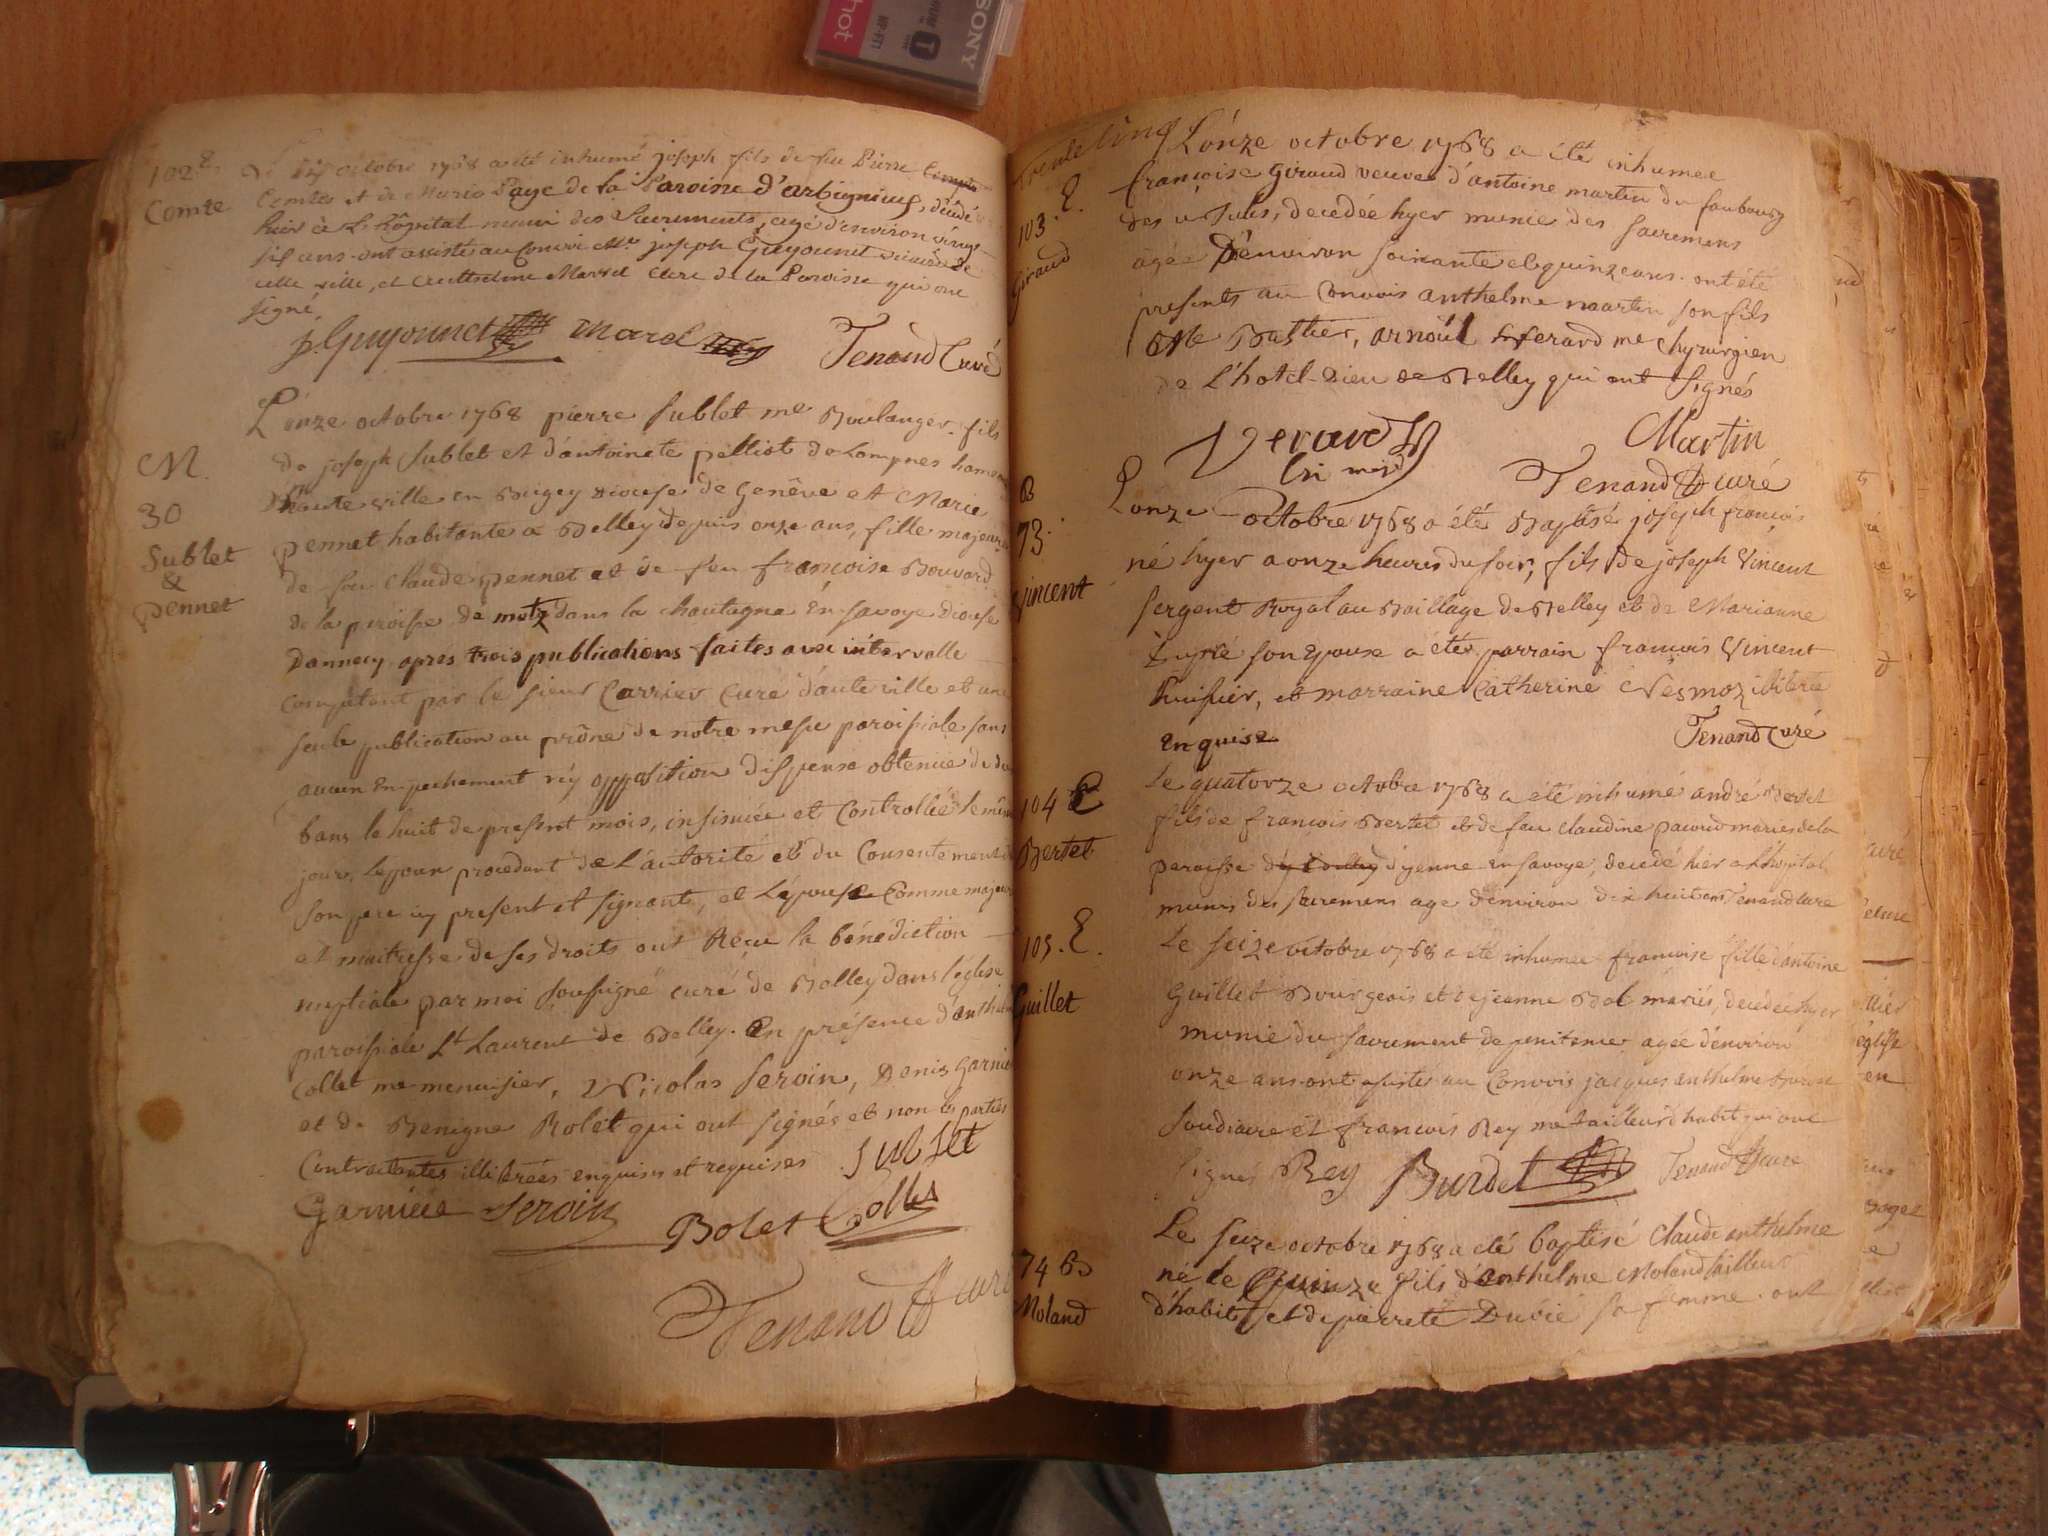 SONY
hot
102 E.
Comte
octobre 1768 a été inhumé joseph fils de feu Pierre
Comte et de Marie Paye de la Paroisse d'arbignieu, décédé
hier à L'hôpital muni des Sacrements, agé d'environ vingt
six ans. ont assisté au Convoi Mre joseph Guyonnet vicaire de
cette ville, et Curé de la Paroisse qui ont
signé
j. Guyonnet Marel Tenand Curé
M.
30
Sublet
&
pennet
L'onze octobre 1768 pierre Sublet me Boulanger fils
de joseph Sublet et d'antoinete pelliot de Lompnes hameau
d'haute ville en Bugey Diocese de Genêve et Marie
pennet habitante a Belley depuis onze ans, fille majeure
de feu claude pennet et de feu françoise Bouvard
de la paroisse de motz dans la chautagne en savoye diocese
Dannecy apres trois publications faites avec intervalle
competant par le sieur Carrier curé d'auteville et une
seule publication au prône de notre messe paroissiale sans
aucun Enpechement ny opposition dispense obtenue de deux
bans le huit de present mois, insinuée et Controllée le même
jour, L'epoux procedant de L'autorité et du Consentement de
son pere icy present et signant, et L'épouse Comme majeure
et maitresse de ses droits ont Reçu la bénédiction
nuptiale par moi soussigné curé de Belley dans l'église
paroissiale St Laurent de Belley. En présence d'anthelme
Collet me menuisier, Nicolas Seroin, Denis Garnier
et de Benigne Bolet qui ont signés et non les parties
Contractantes illiterées enquises et requises Sublet
Garniere Seroin Bolet Collet
Tenand curé
trente cinq
103. E.
Giraud
L'onze octobre 1768 a été inhumee
françoise Giraud veuve d'antoine martin du faubourg
des ursules, decedée hyer munie des sacremens
agée D'environ soixante et quinze ans. ont été
presents au Convois anthelme martin son fils
Bastier, arnoul Verard me chyrurgien
de L'hotel-Dieu de Belley qui ont signés
Verard Martin
Tenand curé
B
73.
Vincent
L'onze octobre 1768 a été Baptisé joseph françois
né hyer a onze heures du soir, fils de joseph Vincent
sergent Royal au Baillage de Belley et de Marianne
son Epouse a été parrain françois Vincent
huissier, et marraine Catherine Nesmoz illiterée
enquise Tenand Curé
104 E
Bertet
Le quatorze octobre 1768 a été inhumé andré Bertet
fils de françois Bertet et de feu claudine pacoud mariés de la
paroisse d'yenne en savoye, decedé hier a L'hopital
munis des sacremens agé d'environ dix huit ans Tenand curé
105. E.
Guillet
Le seize octobre 1768 a été inhumee françoise fille d'antoine
Guillet Bourgeois et de jeanne Bal mariés, decedée hyer
munie du sacrement de penitence agée d'environ
onze ans ont assistés au Convois jacques anthelme
soudiacre et françois Rey me tailleur d'habit qui ont
signés Rey Burdet Tenand curé
74 B
Moland
Le seize octobre 1768 a été baptisé Claude anthelme
né le Quinze fils d'anthelme Moland tailleur
d'habits et de pierrete Dubié sa femme. ont
église
en